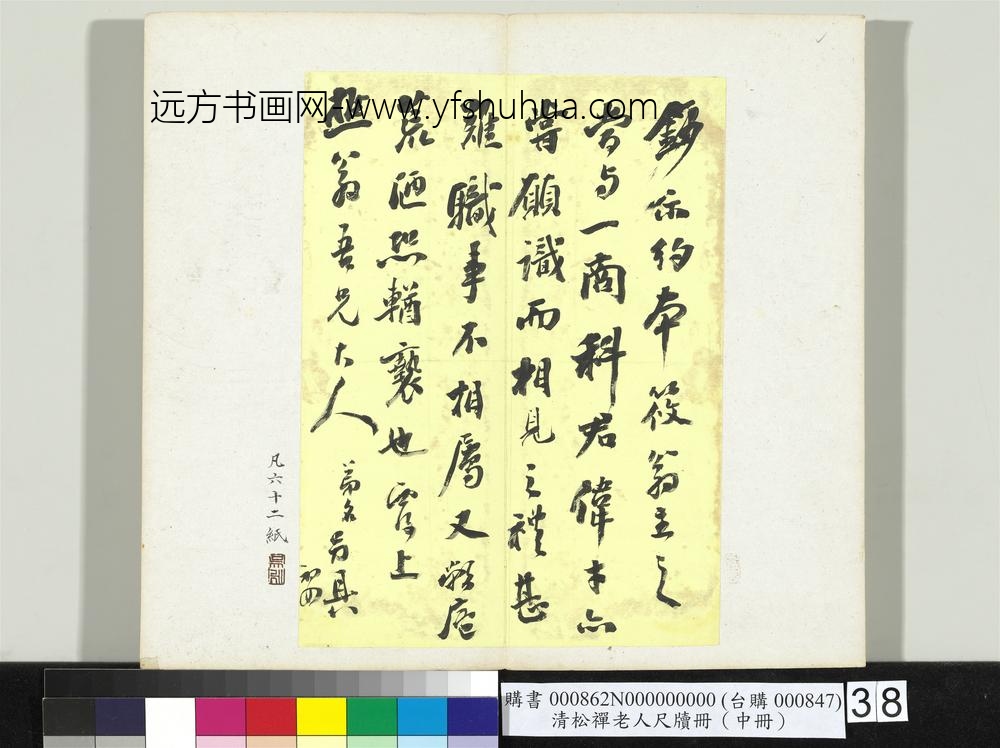 远方书画网-www.yfshuhua.com
示約本筱翁主之
与一商科君偉才亦
嘗願識而相見之禮甚
難職事不相屬又
荒陋恐輶褻也 上
翁吾兄大人
弟名另具
初四
凡六十二紙
購書 000862N000000000 (台購 000847)
清松禪老人尺牘冊（中冊）
38